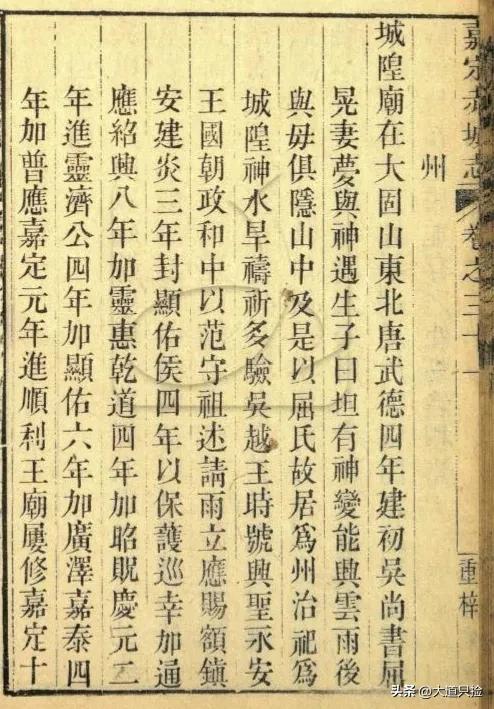 嘉定赤城志 卷之三十一 重梓
州
城隍廟在大固山東北唐武德四年建初吳尚書屈
晃妻夢與神遇生子曰坦有神變能興雲雨後
與毋俱隱山中及是以屈氏故居爲州治祀爲
城隍神水旱禱祈多驗吳越王時號興聖永安
王國朝政和中以范守祖述請雨立應賜額鎮
安建炎三年封顯佑侯四年以保護巡幸加通
應紹興八年加靈惠乾道四年加昭貺慶元二
年進靈濟公四年加顯佑六年加廣澤嘉泰四
年加普應嘉定元年進順利王廟屢修嘉定十
头条 @大道只捡